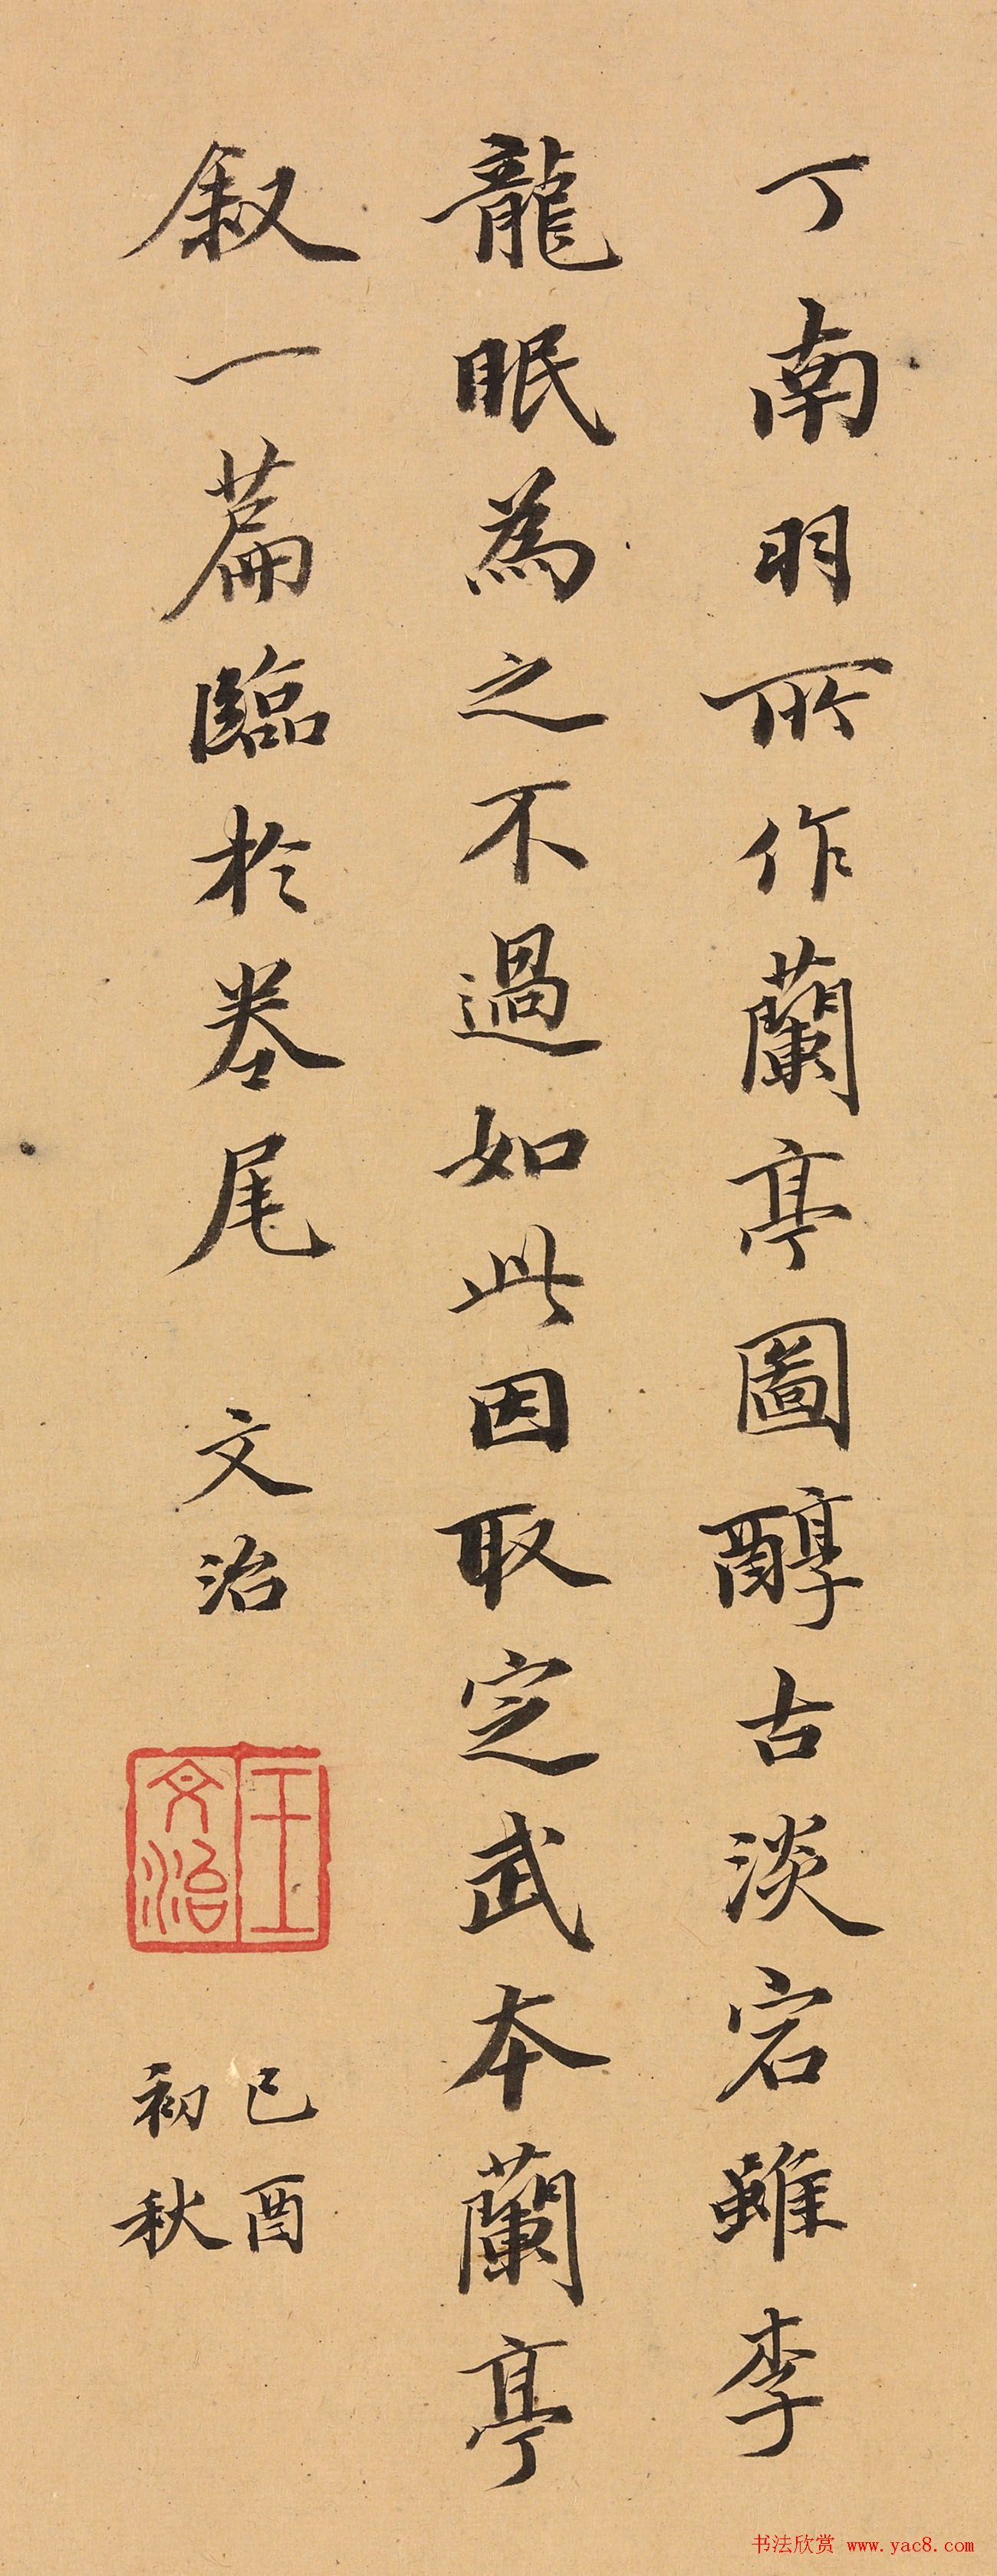 丁南羽所作蘭亭圖醇古淡宕雖李
龍眠為之不過如此因取定武本蘭亭
叙一篇臨於卷尾 文治
王文治
己酉
初秋
书法欣赏 www.yac8.com